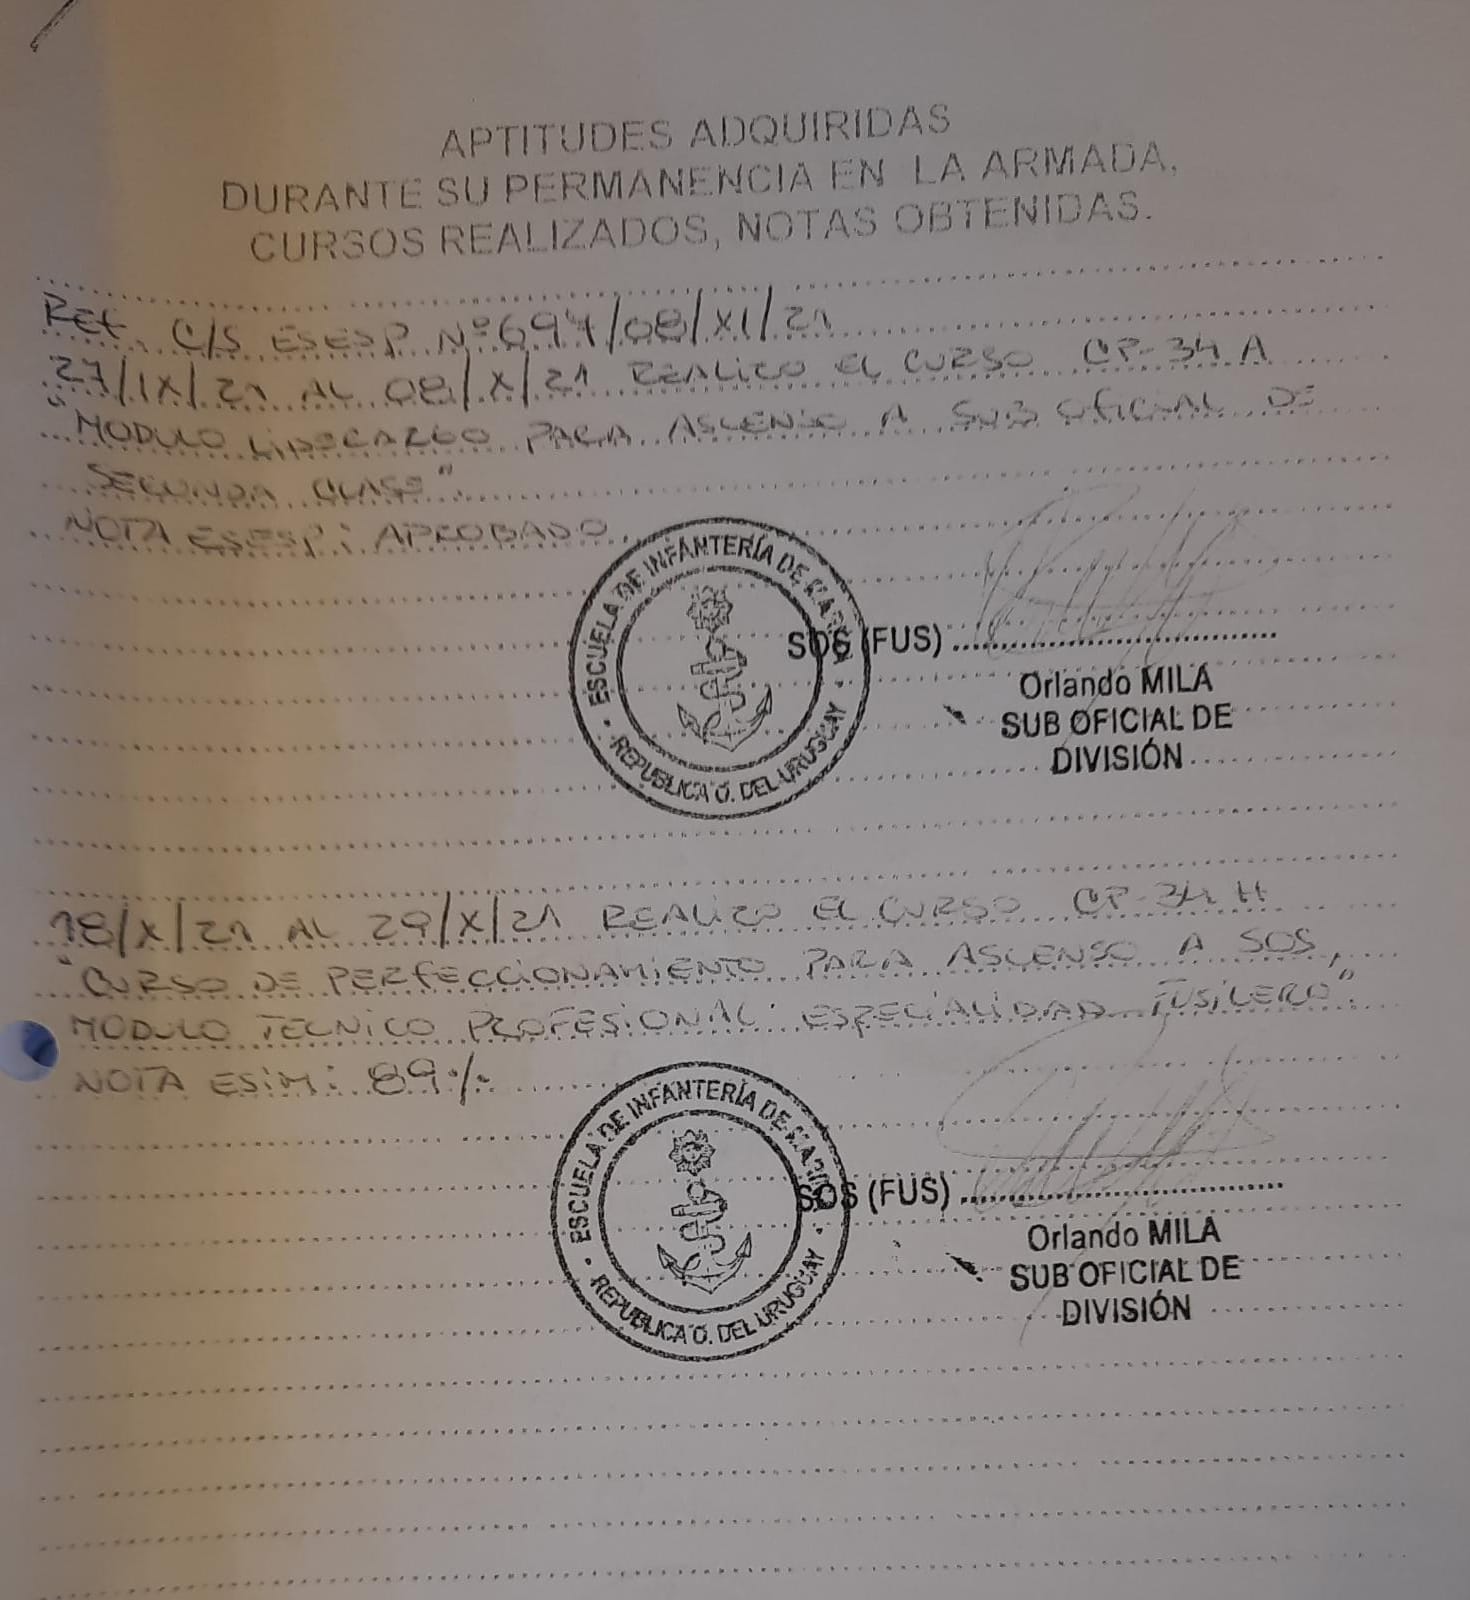 APTITUDES ADQUIRIDAS
DURANTE SU PERMANENCIA EN LA ARMADA,
CURSOS REALIZADOS, NOTAS OBTENIDAS.
Ref. C/S ESESP Nº697/08/XI/21
27/IX/21 AL 08/X/21 REALIZO EL CURSO CP-34 A
"MODULO LIDERAZGO PARA ASCENSO A SUB OFICIAL DE
SEGUNDA CLASE".
NOTA ESESP: APROBADO.
ESCUELA DE INFANTERÍA DE MARINA
REPUBLICA O. DEL URUGUAY
SOS (FUS)
Orlando MILA
SUB OFICIAL DE
DIVISIÓN
18/X/21 AL 29/X/21 REALIZO EL CURSO CP-34 H
"CURSO DE PERFECCIONAMIENTO PARA ASCENSO A SOS,
MODULO TECNICO PROFESIONAL: ESPECIALIDAD FUSILERO".
NOTA ESIM: 89%
ESCUELA DE INFANTERÍA DE MARINA
REPUBLICA O. DEL URUGUAY
SOS (FUS)
Orlando MILA
SUB OFICIAL DE
DIVISIÓN